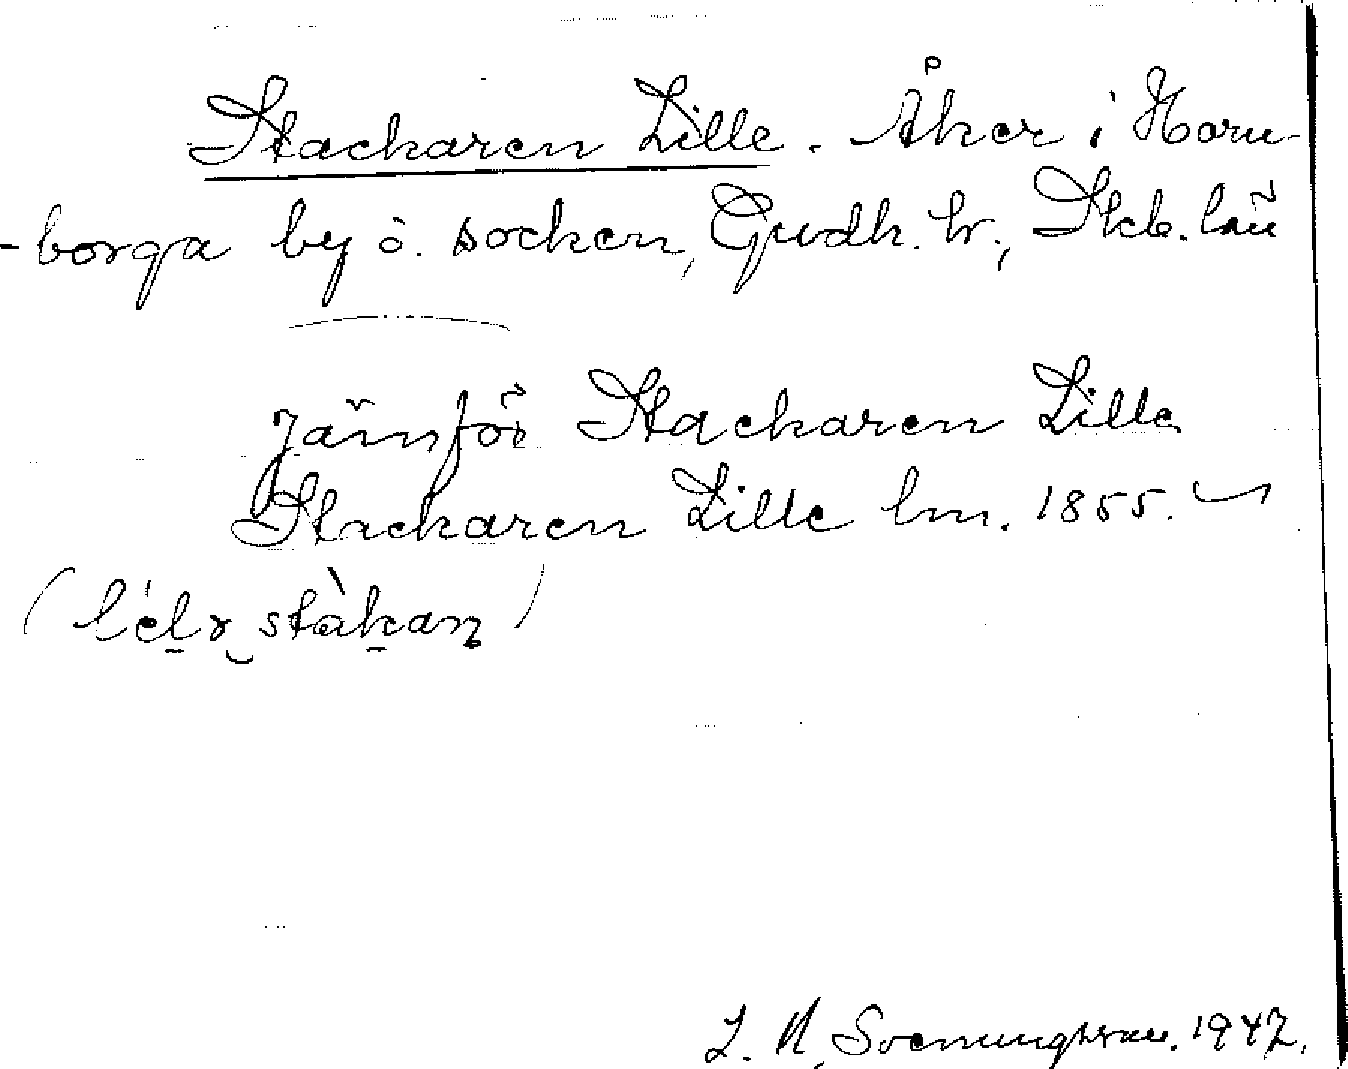 Stackaren Lille. Åker i Horn-
-borga by o. socken, Gudh. hr., Skb. län
Jämför Stackaren Lille
Stackaren Lille lm. 1855.
L. A. Svenungsson. 1947.